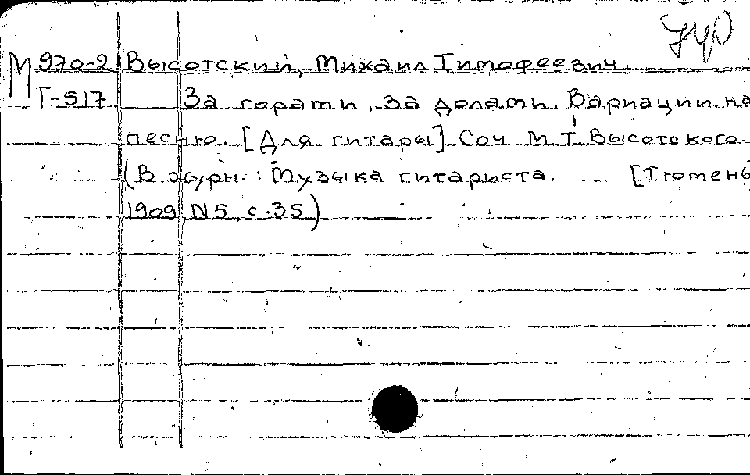 М 970-2 Высотский, Михаил Тимофеевич.
Г-517 За горами, за долами. Вариации на
песню. [Для гитары] Соч. М.Т. Высотского
(В журн.: Музыка гитариста. [Тюмень
1909 N5 с.35)